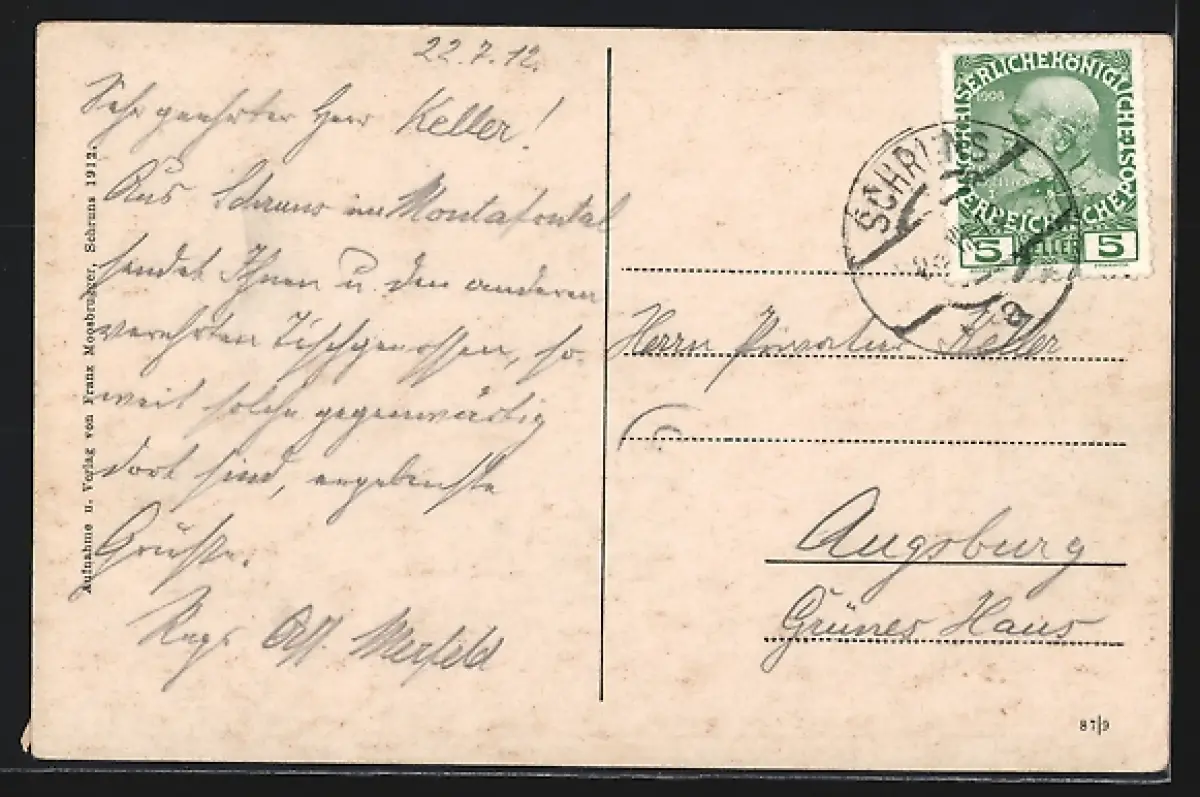 22.7.12.
Sehr geehrter Herr Keller!
Aus Schruns im Montafontal
sendet Ihnen u. den anderen
verehrten Tischgenossen, so-
weit solche gegenwärtig
dort sind, ergebenste
Grüße.
Aff. Merfeld
Aufnahme u. Verlag von Franz Moosbrugger, Schruns 1912.
KAISERLICHEKÖNIGLICHE
ÖSTERREICHISCHEPOST
1908
5 HELLER 5
SCHRUNS
a
Herrn Privatier Keller
Augsburg
Grünes Haus
87/9